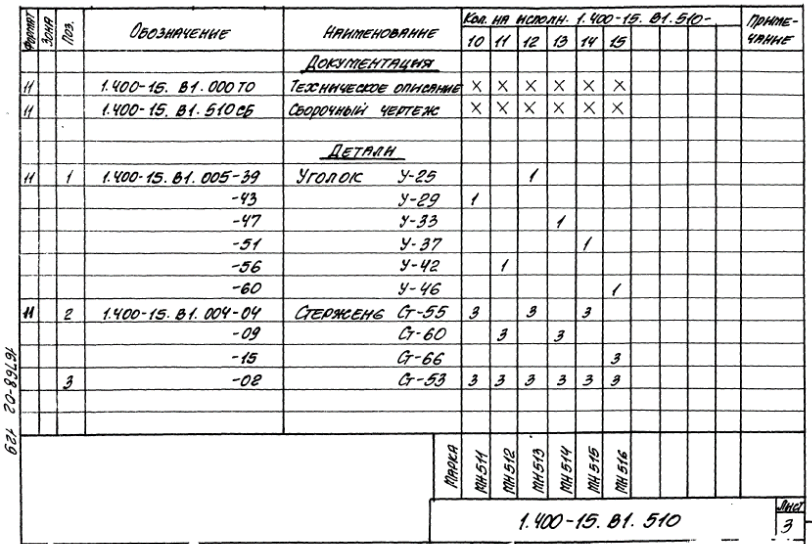 ФОРМАТ ЗОНА ПОЗ. ОБОЗНАЧЕНИЕ НАИМЕНОВАНИЕ Кол. на исполн. 1.400-15. В1.510- ПРИМЕЧАНИЕ
10 11 12 13 14 15
ДОКУМЕНТАЦИЯ
11 1.400-15. В1.000ТО ТЕХНИЧЕСКОЕ ОПИСАНИЕ × × × × × ×
11 1.400-15. В1.510СБ СБОРОЧНЫЙ ЧЕРТЕЖ × × × × × ×
ДЕТАЛИ
11 1 1.400-15. В1.005-39 УГОЛОК У-25 1
-43 У-29 1
-47 У-33 1
-51 У-37 1
-56 У-42 1
-60 У-46 1
11 2 1.400-15. В1.004-04 СТЕРЖЕНЬ Ст-55 3 3 3
-09 Ст-60 3 3
-15 Ст-66 3
3 -02 Ст-53 3 3 3 3 3 3
МАРКА МН511 МН512 МН513 МН514 МН515 МН516
1.400-15. В1. 510
Лист
3
16768-02 129